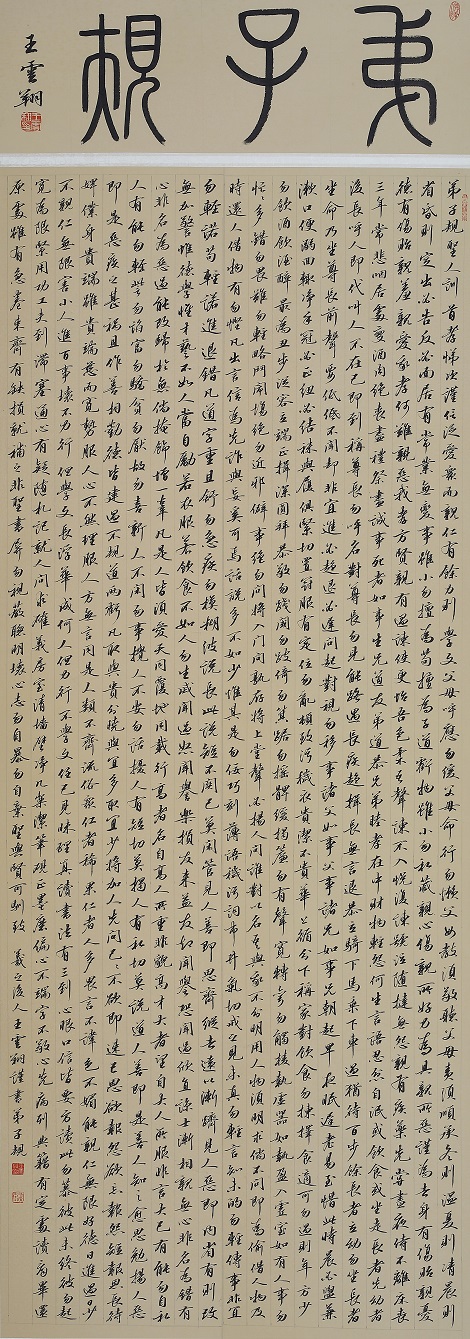 弟子規
王雲翔
弟子規聖人訓首孝悌次謹信泛愛衆而親仁有餘力則學文父母呼應勿緩父母命行勿懶父母教須敬聽父母責須順承冬則溫夏則清晨則
省昏則定出必告反必面居有常業無變事雖小勿擅為苟擅為子道虧物雖小勿私藏親心傷親所好力為具親所惡謹為去身有傷貽親憂
德有傷貽親羞親愛我孝何難親惡我孝方賢親有過諫使更怡吾色柔吾聲諫不入悅復諫號泣隨撻無怨親有疾藥先嘗晝夜侍不離床喪
三年常悲咽居處變酒肉絕喪盡禮祭盡誠事死者如事生兄道友弟道恭兄弟睦孝在中財物輕怨何生言語忍忿自泯或飲食或坐走長者先幼者
後長呼人即代叫人不在己即到稱尊長勿呼名對尊長勿見能路遇長疾趨揖長無言退恭立騎下馬乘下車過猶待百步餘長者立幼勿坐長者
坐命乃坐尊長前聲要低低不聞卻非宜近必趨退必遲問起對視勿移事諸父如事父事諸兄如事兄朝起早夜眠遲老易至惜此時晨必盥兼
漱口便溺回輒淨手冠必正紐必結襪與履俱緊切置冠服有定位勿亂頓致污穢衣貴潔不貴華上循分下稱家對飲食勿揀擇食適可勿過則年方少
勿飲酒飲酒醉最為丑步從容立端正揖深圓拜恭敬勿踐閾勿跛倚勿箕踞勿搖髀緩揭簾勿有聲寬轉彎勿觸棱執虛器如執盈入虛室如有人事勿
忙忙多錯勿畏難勿輕略鬥鬧場絕勿近邪僻事絕勿問將入門問孰存將上堂聲必揚人問誰對以名吾與我不分明用人物須明求倘不問即為偷借人物及
時還人借物有勿慳凡出言信為先詐與妄奚可焉話說多不如少惟其是勿佞巧刻薄語穢污詞市井氣切戒之見未真勿輕言知未的勿輕傳事非宜
勿輕諾苟輕諾進退錯凡道字重且舒勿急疾勿模糊彼說長此說短不關己莫閑管見人善即思齊縱去遠以漸躋見人惡即內省有則改
無加警惟德學惟才藝不如人當自勵若衣服若飲食不如人勿生戚聞過怒聞譽樂損友來益友卻聞譽恐聞過欣直諒士漸相親無心非名為錯有
心非名為惡過能改歸於無倘掩飾增一辜凡是人皆須愛天同覆地同載行高者名自高人所重非貌高才大者望自大人所服非言大己有能勿自私
人有能勿輕訾勿諂富勿驕貧勿厭故勿喜新人不閑勿事攪人不安勿話擾人有短切莫揭人有私切莫說道人善即是善人知之愈思勉揚人惡
即是惡疾之甚禍且作善相勸德皆建過不規道兩虧凡取與貴分曉與宜多取宜少將加人先問己己不欲即速已恩欲報怨欲忘報怨短報恩長待
婢僕身貴端雖貴端慈而寬勢服人心不然理服人方無言同是人類不齊流俗衆仁者稀果仁者人多畏言不諱色不媚能親仁無限好德日進過日少
不親仁無限害小人進百事壞不力行但學文長浮華成何人但力行不學文任己見昧理真讀書法有三到心眼口信皆要方讀此勿慕彼此未終彼勿起
寬為限緊用功工夫到滯塞通心有疑隨札記就人問求確義房室清墻壁淨几案潔筆硯正墨磨偏心不端字不敬心先病列典籍有定處讀看畢還
原處雖有急卷束齊有缺損就補之非聖書屏勿視蔽聰明壞心志勿自暴勿自棄聖與賢可馴致 羲之後人王雲翔謹書弟子規